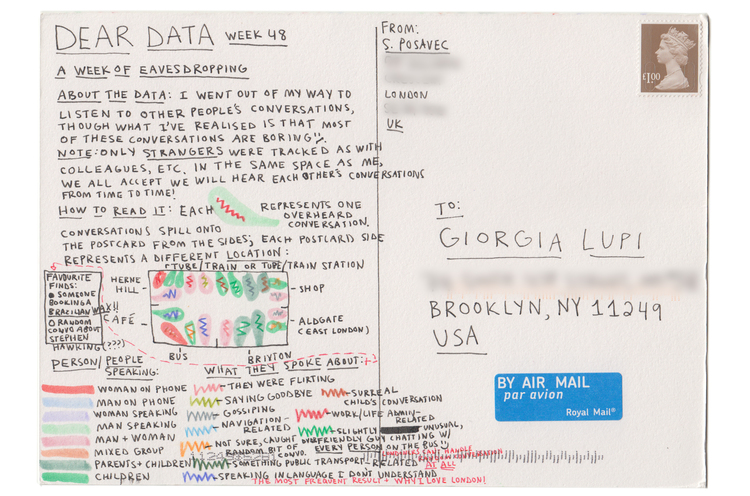 DEAR DATA WEEK 48
A WEEK OF EAVESDROPPING
ABOUT THE DATA: I WENT OUT OF MY WAY TO
LISTEN TO OTHER PEOPLE'S CONVERSATIONS,
THOUGH WHAT I'VE REALISED IS THAT MOST
OF THESE CONVERSATIONS ARE BORING
NOTE: ONLY STRANGERS WERE TRACKED AS WITH
COLLEAGUES, ETC. IN THE SAME SPACE AS ME,
WE ALL ACCEPT WE WILL HEAR EACH OTHER'S CONVERSATIONS
FROM TIME TO TIME!
HOW TO READ IT: EACH REPRESENTS ONE
OVERHEARD
CONVERSATION.
CONVERSATIONS SPILL ONTO
THE POSTCARD FROM THE SIDES; EACH POSTCARD SIDE
REPRESENTS A DIFFERENT LOCATION:
TUBE/TRAIN OR TUBE/TRAIN STATION
HERNE
HILL
SHOP
CAFÉ
ALDGATE
(EAST LONDON)
BUS
BRIXTON
FAVOURITE
FINDS:
SOMEONE
BOOKING A
BRAZILIAN WAX!!
RANDOM
CONVO ABOUT
STEPHEN
HAWKING(???)
PERSON/PEOPLE
SPEAKING:
WOMAN ON PHONE
MAN ON PHONE
WOMAN SPEAKING
MAN SPEAKING
MAN + WOMAN
MIXED GROUP
PARENTS + CHILDREN
CHILDREN
WHAT THEY SPOKE ABOUT:
THEY WERE FLIRTING
SAYING GOODBYE
GOSSIPING
NAVIGATION-
RELATED
NOT SURE, CAUGHT
RANDOM BIT OF
CONVO.
SOMETHING PUBLIC TRANSPORT-RELATED
SPEAKING IN LANGUAGE I DON'T UNDERSTAND
THE MOST FREQUENT RESULT + WHY I LOVE LONDON!
SURREAL
CHILD'S CONVERSATION
WORK/LIFE ADMIN-
RELATED
SLIGHTLY UNUSUAL,
OVERFRIENDLY GUY CHATTING W/
EVERY PERSON ON THE BUS
LONDONERS CAN'T HANDLE
AT ALL
FROM:
S. POSAVEC
LONDON
UK
£1.00
TO:
GIORGIA LUPI
BROOKLYN, NY 11249
USA
BY AIR MAIL
par avion
Royal Mail®